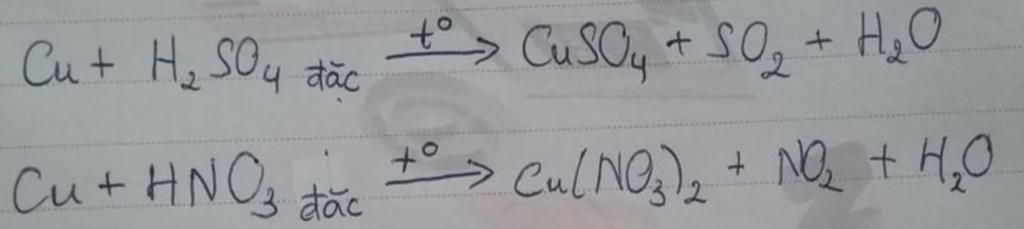 Cu + H₂SO₄ đặc →(t°) CuSO₄ + SO₂ + H₂O
Cu + HNO₃ đặc →(t°) Cu(NO₃)₂ + NO₂ + H₂O